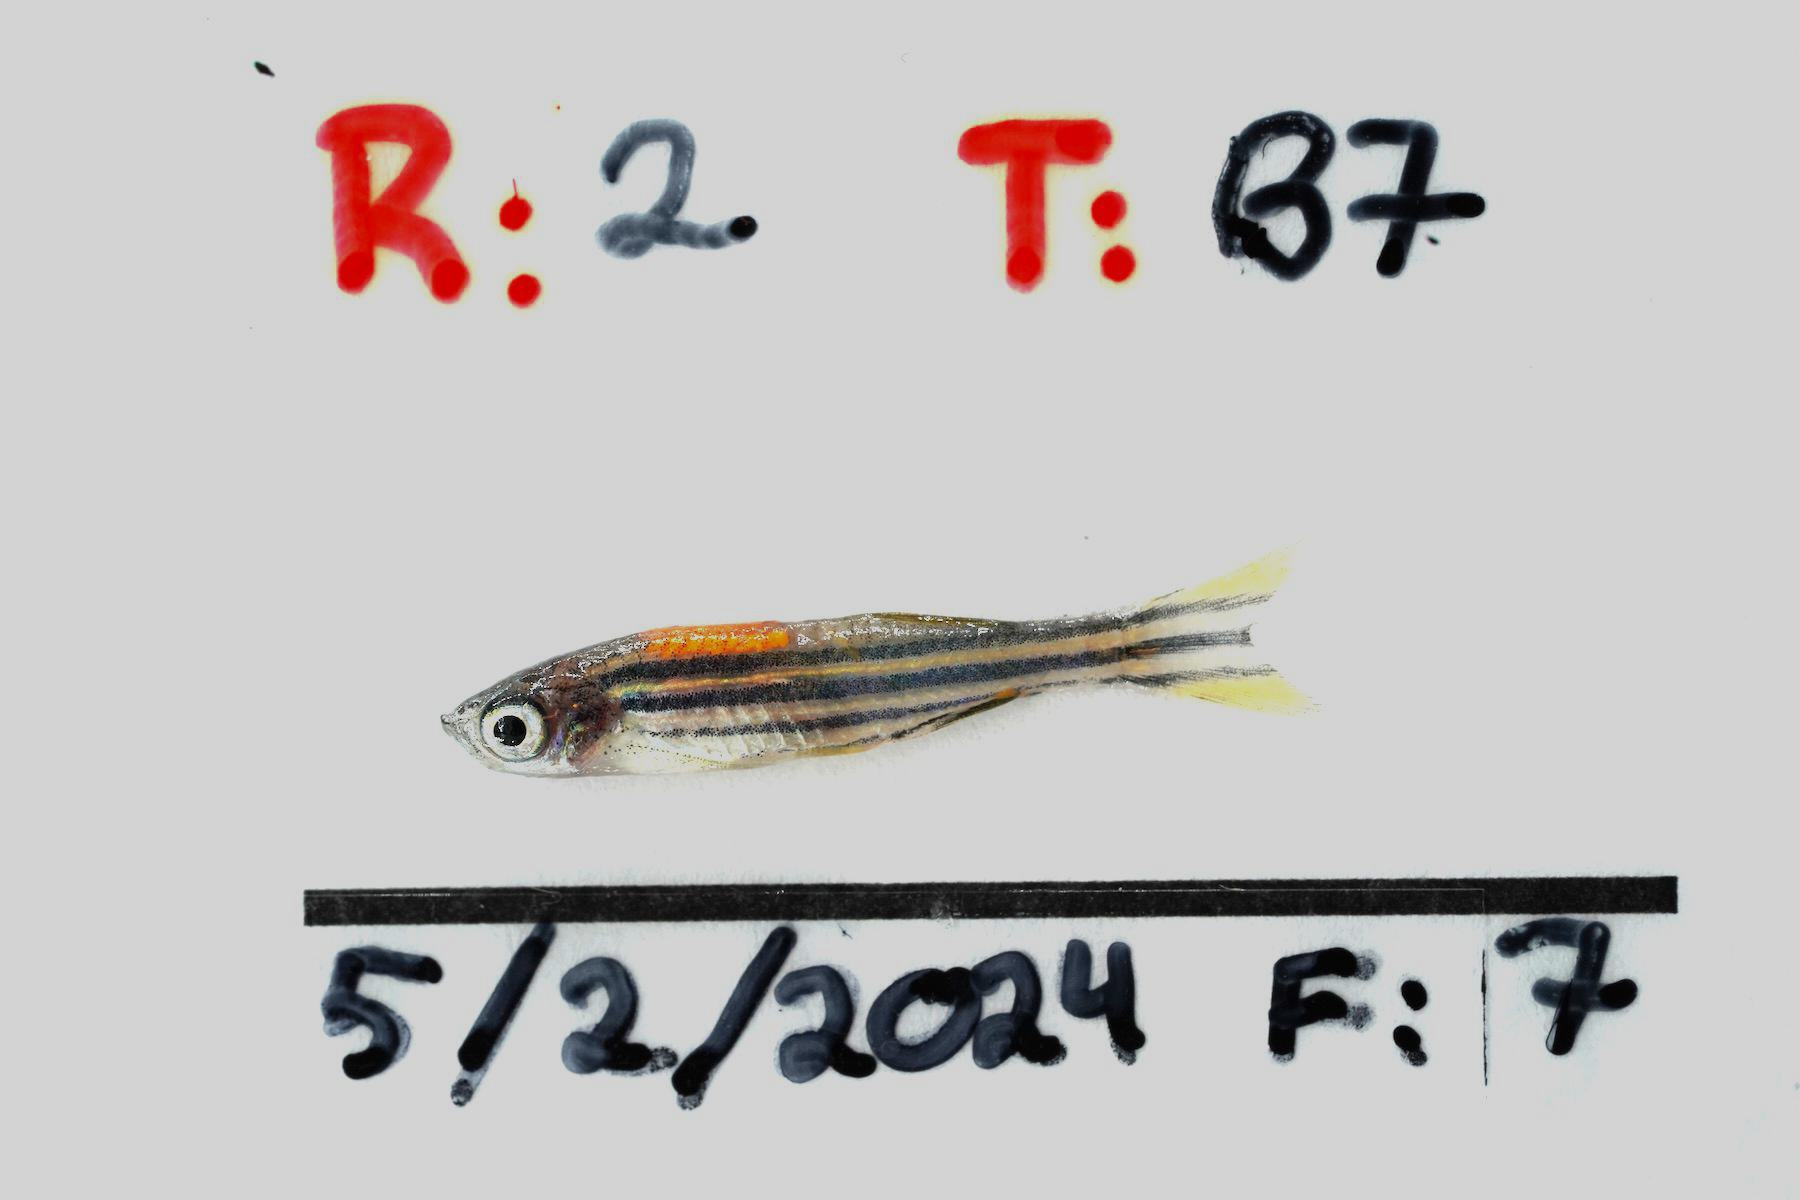 R: 2 T: B7
5/2/2024 F: 7